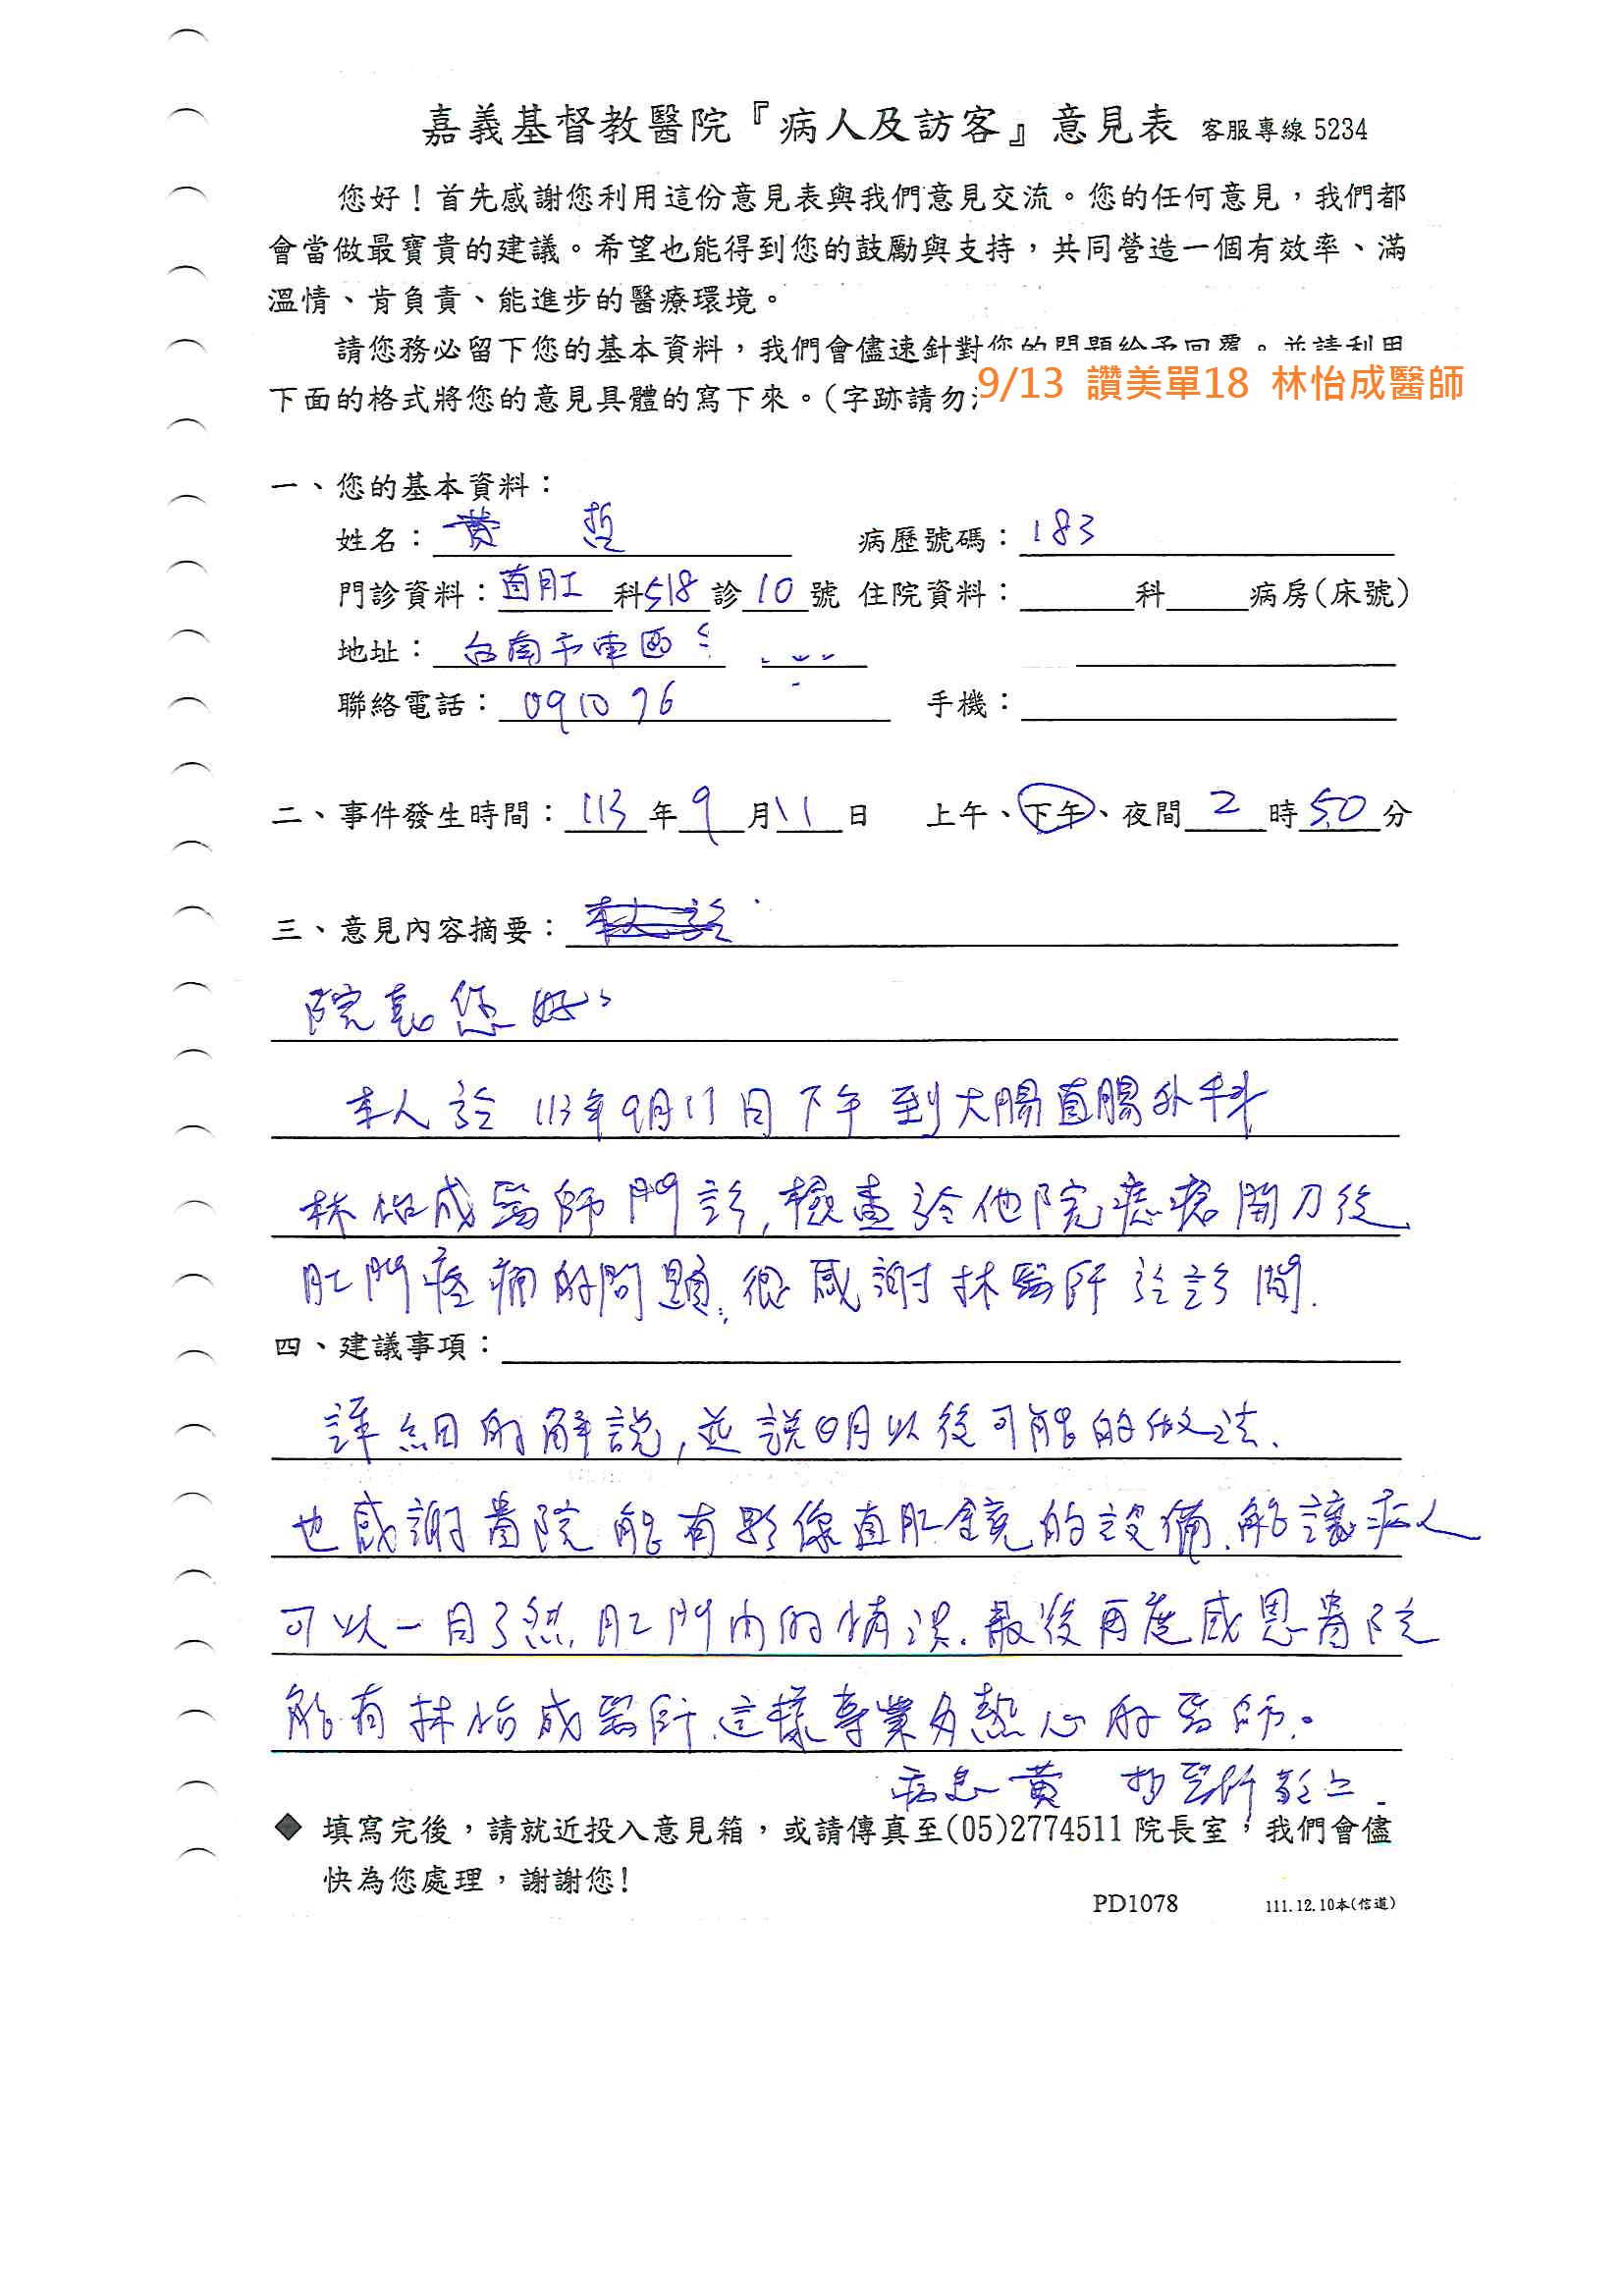 嘉義基督教醫院『病人及訪客』意見表 客服專線 5234
您好！首先感謝您利用這份意見表與我們意見交流。您的任何意見，我們都
會當做最寶貴的建議。希望也能得到您的鼓勵與支持，共同營造一個有效率、滿
溫情、肯負責、能進步的醫療環境。
請您務必留下您的基本資料，我們會儘速針對您的問題給予回覆。並請利用
下面的格式將您的意見具體的寫下來。(字跡請勿
9/13 讚美單18 林怡成醫師
一、您的基本資料：
姓名：黃 哲 病歷號碼：183
門診資料：直肛科518診10號 住院資料：科病房(床號)
地址：台南市東區
聯絡電話：0910 76 手機：
二、事件發生時間：113年9月11日 上午、下午、夜間2時50分
三、意見內容摘要：本人於
院長您好、
本人於113年9月11日下午到大腸直腸外科
林怡成醫師門診，檢查於他院痔瘡開刀後
肛門疼痛的問題，很感謝林醫師於診間.
四、建議事項：
詳細的解說，並說明以後可能的做法.
也感謝貴院能有影像直肛鏡的設備.能讓病人
可以一目了然.肛門內的情況.最後再度感恩貴院
能有林怡成醫師.這樣專業有熱心的醫師。
病患黃 哲 敬上
◆ 填寫完後，請就近投入意見箱，或請傳真至(05)2774511 院長室，我們會儘
快為您處理，謝謝您!
PD1078 111.12.10本(信道)